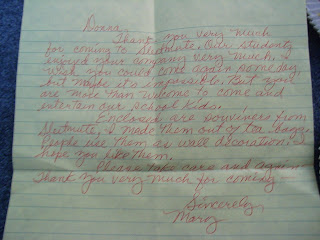 Donna,
Thank you very much
for coming to Our students
enjoyed your company very much. I
wish you could come again someday,
but maybe it's impossible. But you
are more than welcome to come and
entertain our school kids.
Enclosed are souvenirs from
I made them out of tea bags.
People use them as wall decorations. I
hope you like them.
Please take care and again
Thank you very much for coming.
Sincerely,